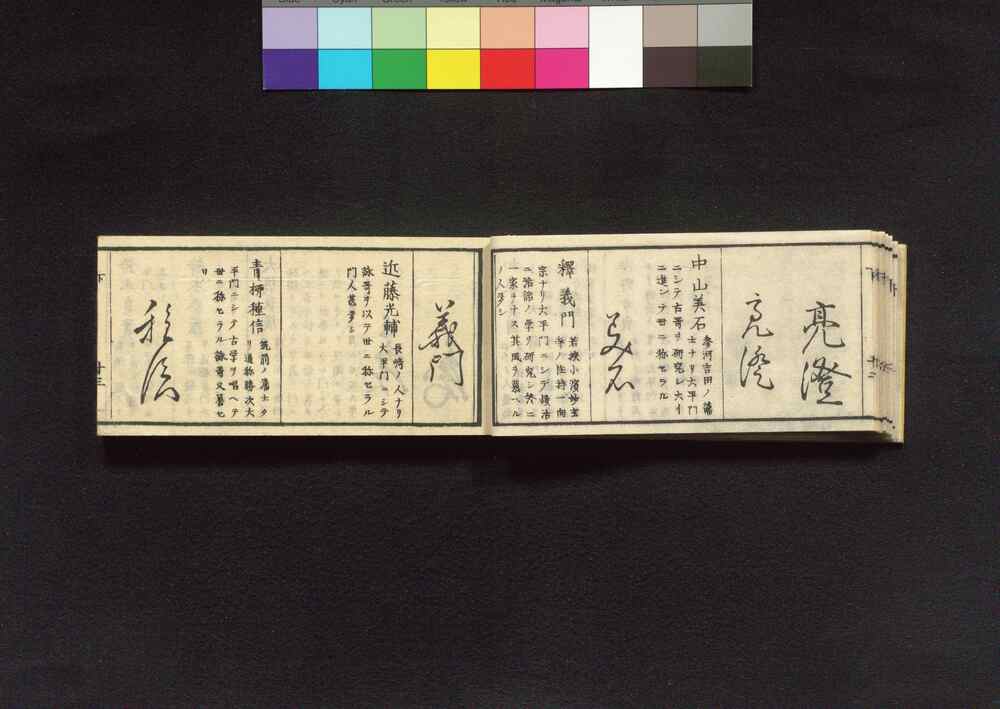 亮澄
亮澄
中山美石 参河吉田ノ藩
士ナリ大平門
ニシテ古哥ヲ研究シ大イ
ニ進ンテ世ニ称セラル
美石
釋義門 若狭小濱妙玄
寺ノ住持一向
宗ナリ大平門ニシテ語活
ニ治語ノ学ヲ研究シ終ニ
一家ヲナス其風ヲ慕ヘル
ノ人多シ
義門
近藤光輔 長崎ノ人ナリ
大平門ニシテ
詠哥ヲ以テ世ニ称セラル
門人甚多シ
青柳種信 筑前ノ藩士タ
リ通称勝次大
平門ニシテ古学ヲ唱ヘテ
世ニ称セラル詠哥又著セ
リ
種信
下
十三